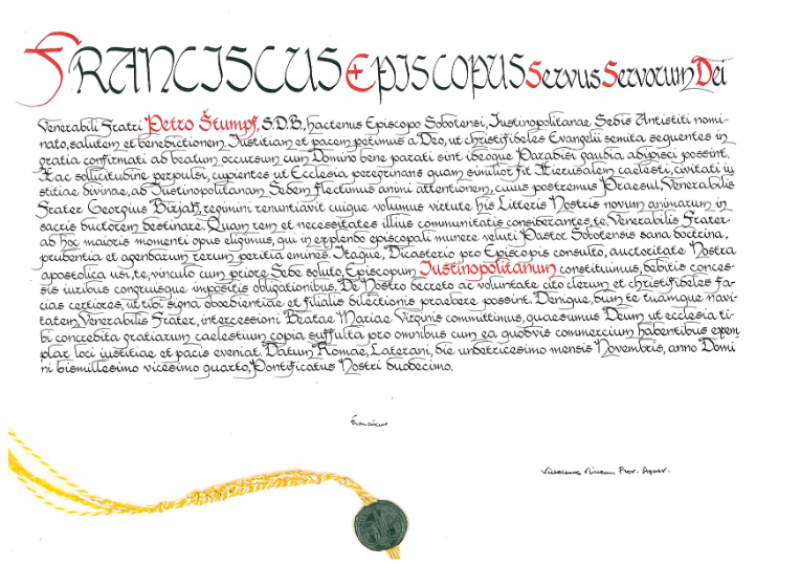 FRANCISCUS EPISCOPUS SERVUS SERVORUM DEI
Venerabili Fratri Petro Štumpf, S.D.B., hactenus Episcopo Sobotensi, Iustinopolitanae Sedis Antistiti nomi-
nato, salutem et benedictionem. Iustitiam et pacem petimus a Deo, ut christifideles Evangelii semita sequentes in
gratia confirmati ad beatum occursum cum Domino bene parati sint ideoque Paradisi gaudia adipisci possint.
Hac sollicitudine perpulsi, cupientes ut Ecclesia peregrinans quam similior fit Hierusalem caelesti, civitati iu
stitiae divinae, ad Iustinopolitanam Sedem flectimus animi attentionem, cuius postremus Praesul, Venerabilis
Frater Georgius Bizjak, regimini renuntiavit cuique volumus virtute his Litteris Nostris novum animarum in
sacris ductorem destinare. Quam rem et necessitates illius communitatis considerantes, te, Venerabilis Frater
ad hoc maioris momenti opus eligimus, qui in explendo episcopali munere veluti Pastor Sobotensis sana doctrina,
prudentia et agendarum rerum peritia emines. Itaque, Dicasterio pro Episcopis consulto, auctoritate Nostra
apostolica usi, te, vinculo cum priore Sede soluto, Episcopum Iustinopolitanum constituimus, debitis conces-
sis iuribus congruisque impositis obligationibus. De Nostro decreto ac voluntate cito clerum et christifideles fa-
cias certiores, ut tibi signa oboedientiae et filialis dilectionis praebere possint. Denique, dum te tuamque navi-
tatem, Venerabilis Frater, intercessioni Beatae Mariae Virginis committimus, quaesumus Deum ut ecclesia ti-
bi concredita gratiarum caelestium copia suffulta pro omnibus cum ea quodvis commercium habentibus exem
plar loci iustitiae et pacis eveniat. Datum Romae, Laterani, die undetricesimo mensis Novembris, anno Domi
ni bismillesimo vicesimo quarto, Pontificatus Nostri duodecimo.
Franciscus